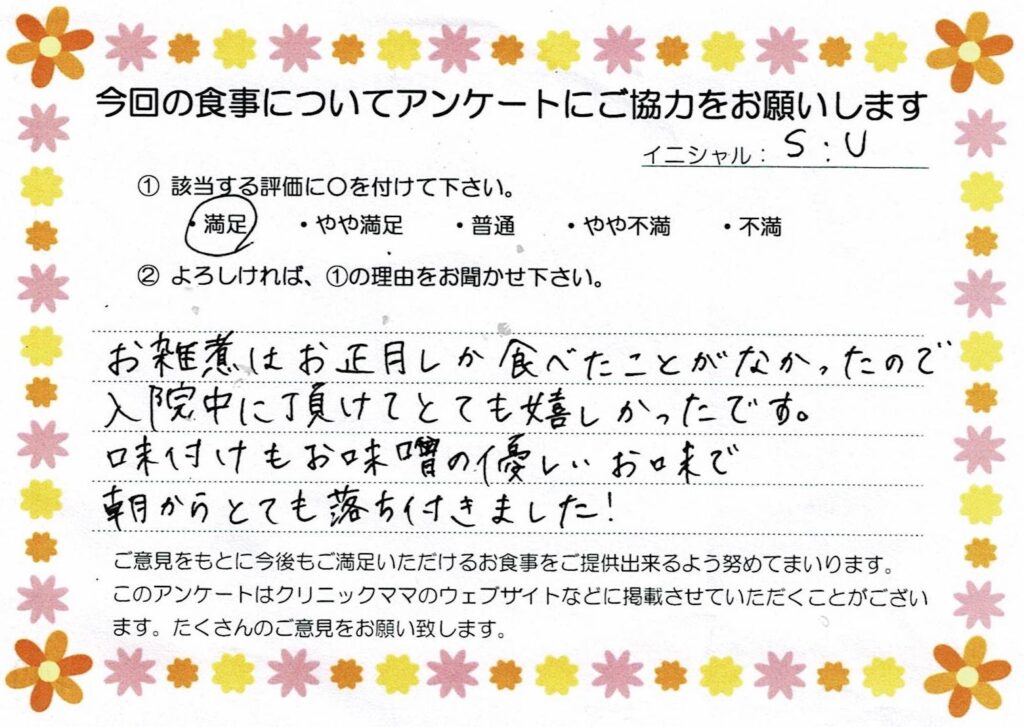 今回の食事についてアンケートにご協力をお願いします
イニシャル: S:U
① 該当する評価に○を付けて下さい。
・満足 ・やや満足 ・普通 ・やや不満 ・不満
② よろしければ、①の理由をお聞かせ下さい。
お雑煮はお正月しか食べたことがなかったので
入院中に頂けてとても嬉しかったです。
味付けもお味噌の優しいお味で
朝からとても落ち付きました!
ご意見をもとに今後もご満足いただけるお食事をご提供出来るよう努めてまいります。
このアンケートはクリニックママのウェブサイトなどに掲載させていただくことがござい
ます。たくさんのご意見をお願い致します。